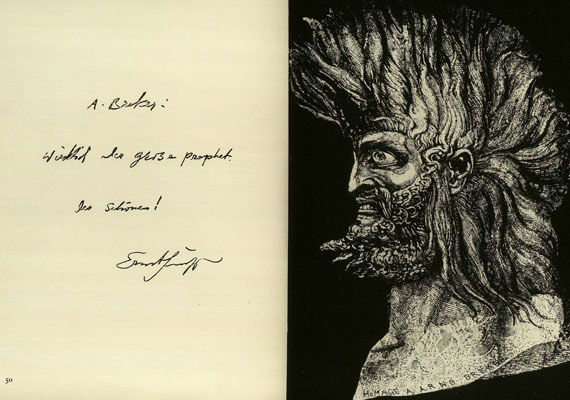 A. Breker:
Wirklich der große Prophet
des Schönen!
Ernst Fuchs
50
HOMAGE A ARNO BRE